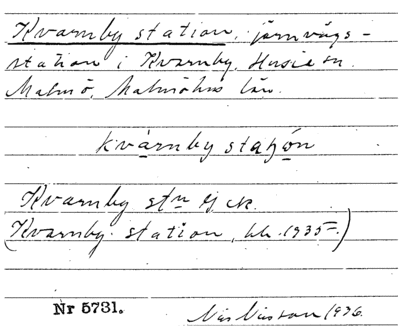 Kvarnby station, järnvägs-
station i Kvarnby, Husie sn.
Malmö, Malmöhus län.
kvarnby station
Kvarnby stn GK.
(Kvarnby station, tlk. 1935.)
Nr 5731.
Nils Nilsson 1936.